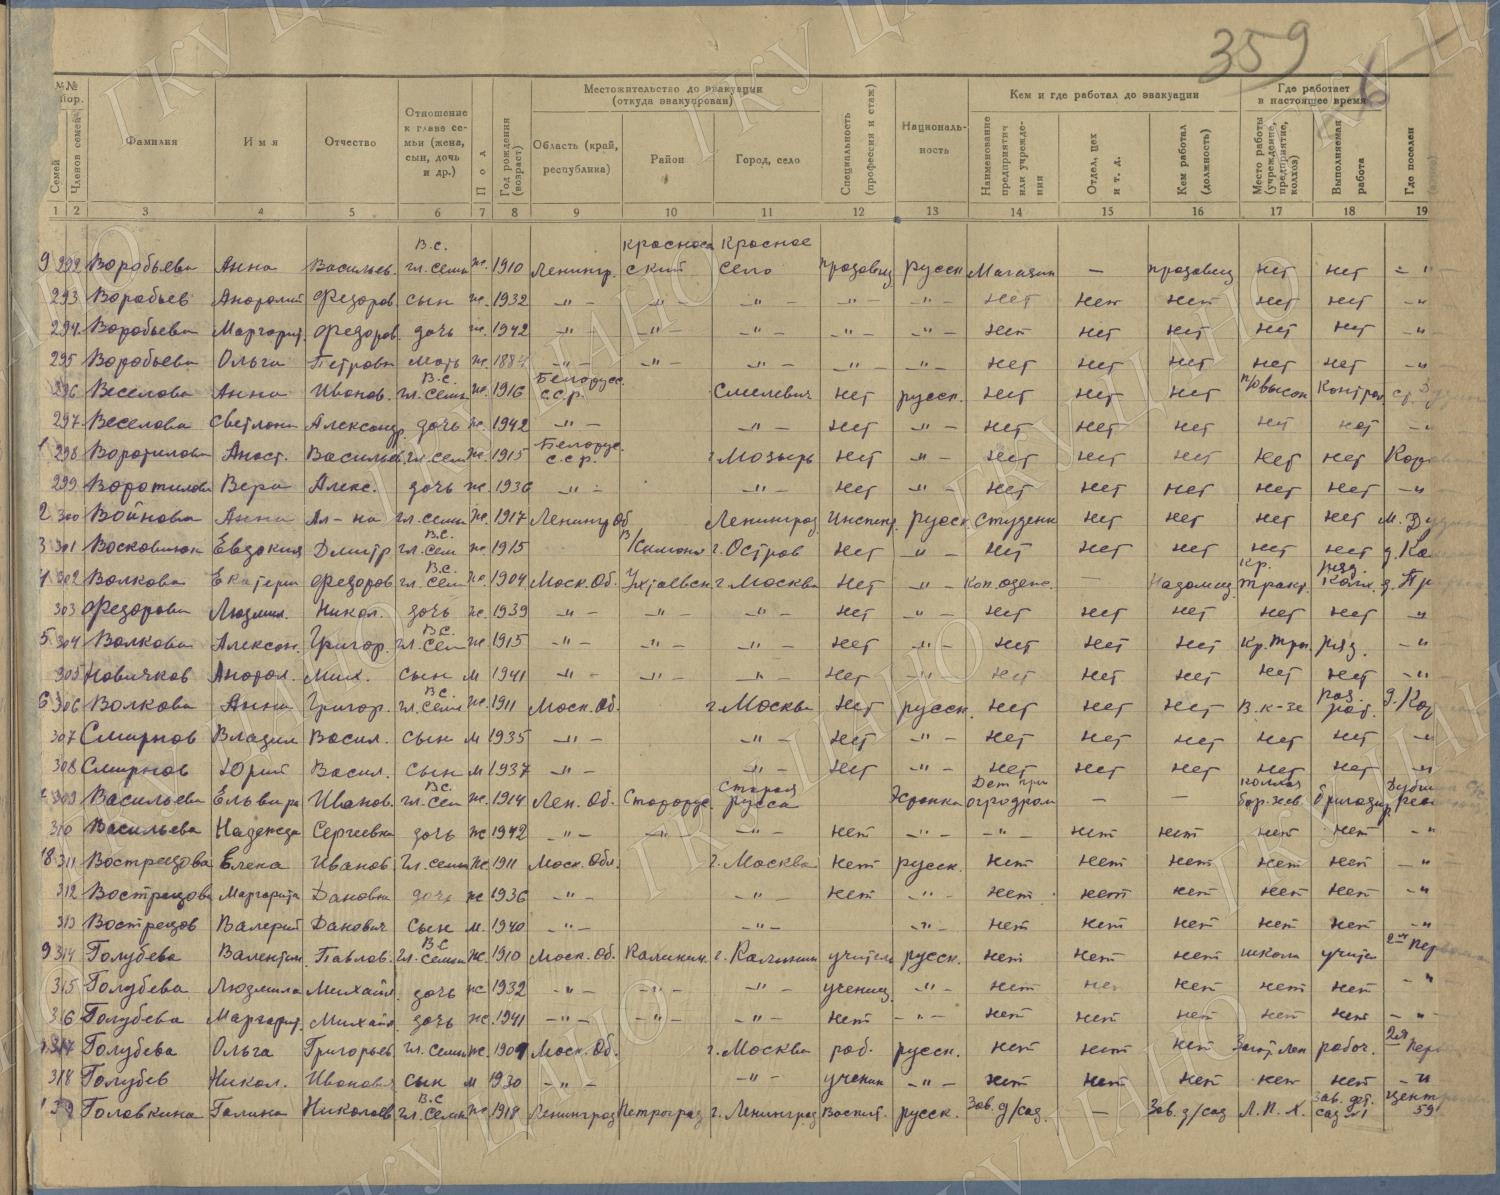 359
6
№№ пор.
Семей
Членов семей
Фамилия
Имя
Отчество
Отношение к главе семьи (жена, сын, дочь и др.)
Пол
Год рождения (возраст)
Местожительство до эвакуации (откуда эвакуирован)
Область (край, республика)
Район
Город, село
Специальность (профессия и стаж)
Националь-ность
Кем и где работал до эвакуации
Наименование предприятия или учрежде-ния
Отдел, цех и т. д.
Кем работал (должность)
Где работает в настоящее время
Место работы (учреждение, предприятие, колхоз)
Выполняемая работа
Где поселен
1 2 3 4 5 6 7 8 9 10 11 12 13 14 15 16 17 18 19
9 292 Воробьева Анна Васильев. В.с. гл. семьи ж. 1910 Ленингр. Красносельский Красное село продавец русск Магазин — продавец нет нет = " —
293 Воробьев Анатолий Федоров. сын 1932 —"— —"— —"— —"— —"— нет нет нет нет нет —"
294 Воробьева Маргарит. Федоров. дочь ж. 1942 —"— —"— —"— —"— —"— нет нет нет нет нет —"
295 Воробьева Ольга Петровн мать ж 1884 —"— —"— —"— —"— —"— нет нет нет нет нет —"
296 Веселова Анна Иванов. В.С. гл. семьи ж. 1916 Белорусс. ССР. Смолевич нет русск. нет нет нет Контрол.
297 Веселова Светлана Александр. дочь ж 1942 —"— —"— нет —"— нет нет нет нет нет —"
298 Воротилова Анаст. Васильев. гл. сем ж. 1915 Белорус. ССР. г. Мозырь нет —"— нет нет нет нет нет
299 Воротилова Вера Алекс. дочь ж. 1936 —"— —"— нет —"— нет нет нет нет нет —"
2 300 Войнова Анна Ал-на гл. семьи ж. 1917 Ленингр Об. Ленинград русск студентк нет нет нет нет
3 301 Евдокия Дмитр В.С. гл. сем ж 1915 г. Остров нет —"— нет нет нет нет нет
4 302 Волкова Екатери Федоров В.С. гл. сем ж. 1904 Моск. Об. г. Москва нет —"— — надомниц. д. Пр
303 Федорова Людмил. Никол. дочь ж. 1939 —"— —"— —"— нет —"— нет нет нет нет нет "
5 304 Волкова Алексан. Григор. В.С. гл. сем ж 1915 —"— —"— —"— нет —"— нет нет нет —"
305 Новичков Анатол. Мих. сын м 1941 —"— —"— —"— нет —"— нет нет нет нет нет —"—
6 306 Волкова Анна Григор. В.С. гл. семьи ж. 1911 Моск. Об. г. Москва нет русск. нет нет нет В. к-зе раз. раб.
307 Смирнов Владим Васил. сын м 1935 —"— —"— нет —"— нет нет нет нет нет —"
308 Смирнов Юрий Васил. сын м 1937 —"— —"— нет —"— нет нет нет нет нет —"
309 Васильева Ельвира Иванов. В.С. гл. сем ж. 1914 Лен. Об. Старорус. Старая русса Эстонка — — колхоз бригадир
310 Васильева Надежда Сергеевна дочь ж 1942 —"— —"— —"— нет —"— —"— нет нет нет нет —"
8 311 Вострецова Елена Иванов гл. семьи ж 1911 Моск. Обл. г. Москва нет русск. нет нет нет нет нет —"
312 Вострецова Маргарита Дановна дочь ж 1936 —"— —"— нет —"— нет нет нет нет нет —"
313 Вострецов Валерий Данович сын м. 1940 —"— —"— —"— нет нет нет нет нет —"
9 314 Голубева Валентин. Павлов. В.С. гл. семьи ж. 1910 Моск. Об. Калинин. г. Калинин учитель русск. нет нет нет школа учител
315 Голубева Людмила Михайл. дочь ж 1932 —"— —"— —"— учениц. —"— нет нет нет нет нет —"
316 Голубева Маргарит. Михайл. дочь ж. 1941 —"— —"— —"— нет —"— нет нет нет нет нет —"
317 Голубева Ольга Григорьев гл. семьи ж. 1909 Моск. Об. г. Москва раб. русск. нет нет нет рабоч.
318 Голубев Никол. Иванович сын м 1930 —"— —"— ученик —"— нет нет нет нет нет —"
Головкина Галина Николаев В.С. гл. семьи ж 1918 Ленинград Петроград г. Ленинград Воспит. русск. Зав. д/сад — Зав. д/сад Л.П.Х. Зав. дет. сад №1 59
ГКУ ЦАНО